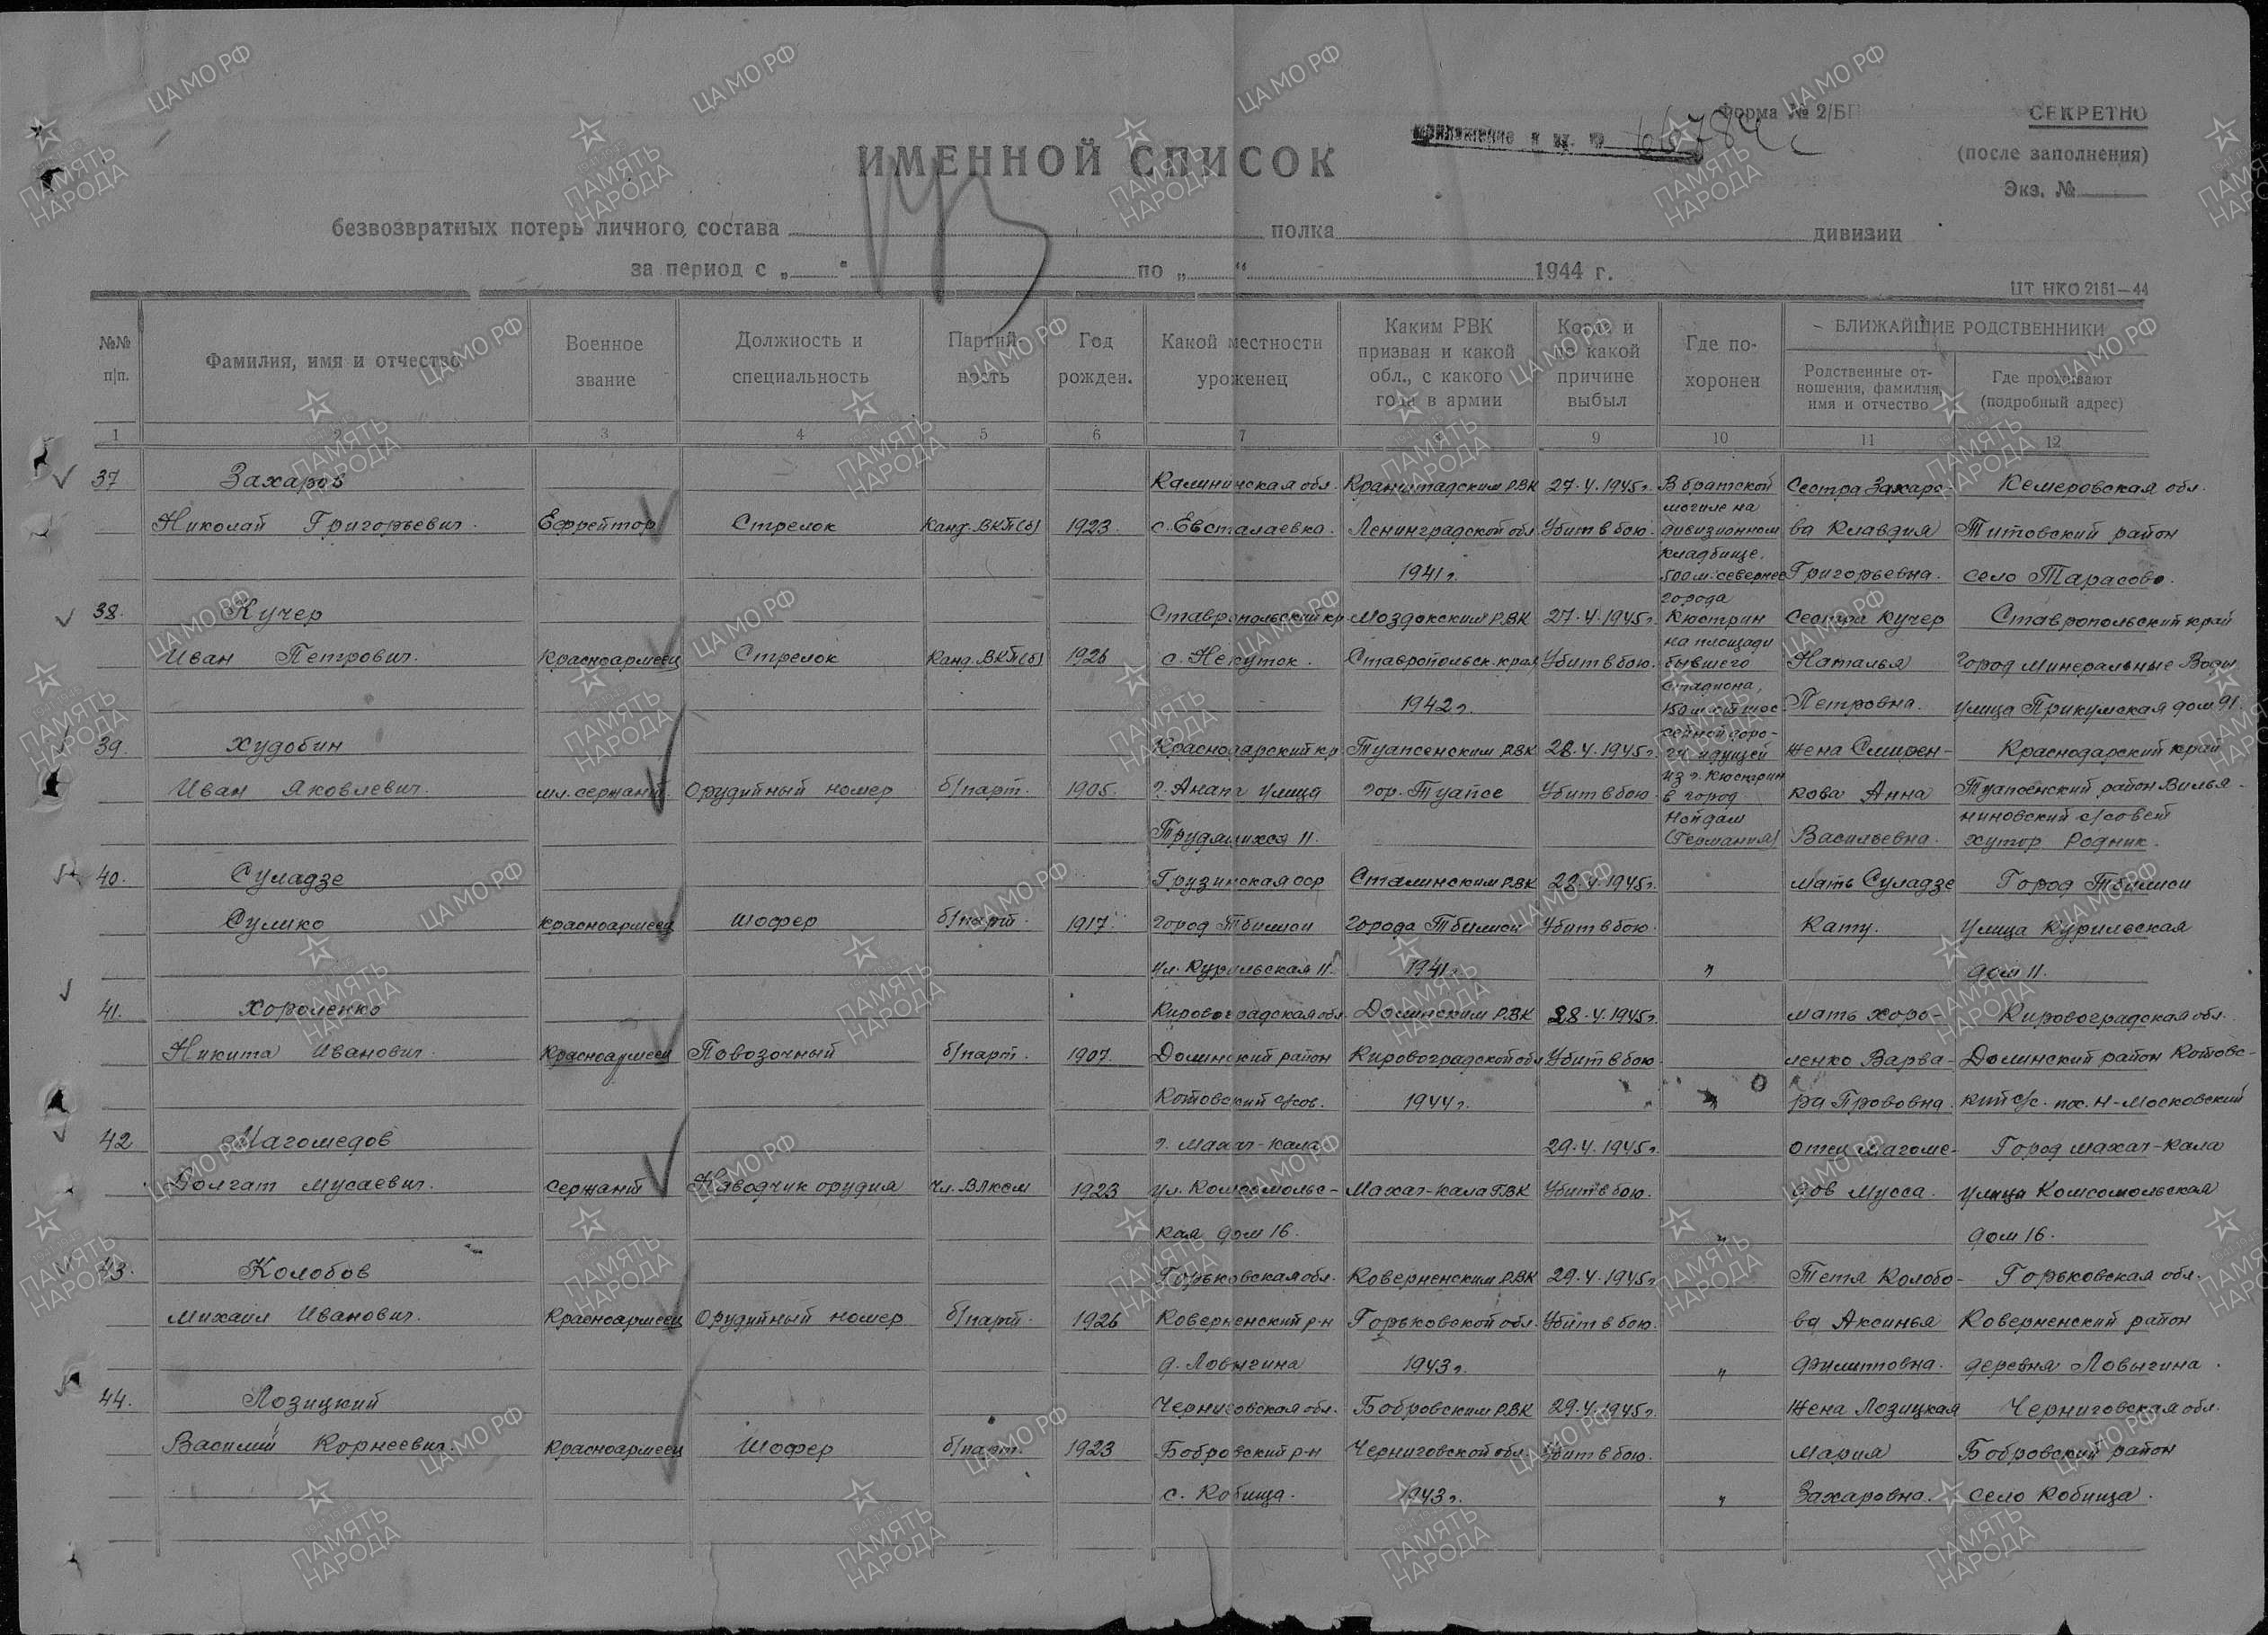 Форма № 2/БП
СЕКРЕТНО
приложение к вх. № 66784с
(после заполнения)
Экз. №
ИМЕННОЙ СПИСОК
безвозвратных потерь личного состава полка дивизии
за период с „ “ по „ “ 1944 г.
ЦТ НКО 2151—44
№№ п|п.
Фамилия, имя и отчество
Военное звание
Должность и специальность
Партий- ность
Год рожден.
Какой местности уроженец
Каким РВК призван и какой обл., с какого года в армии
Когда и по какой причине выбыл
Где по- хоронен
БЛИЖАЙШИЕ РОДСТВЕННИКИ
Родственные от- ношения, фамилия, имя и отчество
Где проживают (подробный адрес)
1 2 3 4 5 6 7 8 9 10 11 12
37 Захаров Калининская обл. Кронштадским РВК 27.4.1945г. В братской Сестра Захаро- Кемеровская обл.
могиле на
Николай Григорьевич. Ефрейтор Стрелок Канд. ВКП(б) 1923. с. Евсталаевка. Ленинградской обл Убит в бою. дивизионном ва Клавдия Титовский район
кладбище.
1941г. 500 м. севернее Григорьевна. село Тарасово.
города
38. Кучер Ставропольский кр Моздокским РВК 27.4.1945г. Кюстрин Сестра Кучер Ставропольский край
на площади
Иван Петрович. Красноармеец Стрелок Канд. ВКП(б) 1926 с. Некуток. Ставропольск. края Убит в бою. бывшего Наталья Город Минеральные Воды
стадиона,
1942г. 150 м. от шос- Петровна. улица Прикумская дом 91.
сейной доро-
39. Худобин Краснодарский кр Туапсенским РВК 28.4.1945г. ги идущей Жена Смирен- Краснодарский край
из г. Кюстрин
Иван Яковлевич. мл. сержант Орудийный номер б/парт. 1905. г. Анапа улица гор. Туапсе Убит в бою в город кова Анна Туапсенский район Вилья-
Нойдам ниновский с/совет
Трудящихся 11. (Германия) Васильевна. хутор Родник.
40. Суладзе Грузинская сср Сталинским РВК 28.4.1945г. мать Суладзе Город Тбилиси
Сулико красноармеец шофер б/парт. 1917. город Тбилиси города Тбилиси Убит в бою. Кату. Улица Курильская
ул. Курильская 11. 1941г. " дом 11.
41. Хороленко Кировоградская обл. Долинским РВК 28.4.1945г. мать Хоро- Кировоградская обл.
Никита Иванович. Красноармеец Повозочный б/парт. 1907. Долинский район Кировоградской обл Убит в бою. ленко Варва- Долинский район Котовс-
Котовский с/сов. 1944г. " ра Прововна. кий с/с. пос. Н-Московский
42 Магомедов г. Махач-кала 29.4.1945г. отец Магоме- Город Махач-Кала
Болгат Мусаевич. сержант Наводчик орудия чл. ВЛКСМ 1923 ул. Комсомольс- Махач-Кала ГВК Убит в бою. дов Мусса. улица Комсомольская
кая дом 16. " дом 16.
43. Колобов Горьковская обл. Коверненским РВК 29.4.1945г. Тетя Колобо- Горьковская обл.
Михаил Иванович. Красноармеец Орудийный номер б/парт. 1926 Коверненский р-н Горьковской обл. Убит в бою. ва Аксинья Коверненский район
д. Ловыгина 1943г. " Филипповна. деревня Ловыгина.
44. Лозицкий Черниговская обл. Бобровским РВК 29.4.1945г. Жена Лозицкая Черниговская обл.
Василий Корнеевич. Красноармеец Шофер б/парт. 1923 Бобровский р-н Черниговской обл. Убит в бою. Мария Бобровский район
с. Кобища. 1943г. " Захаровна. село Кобища.